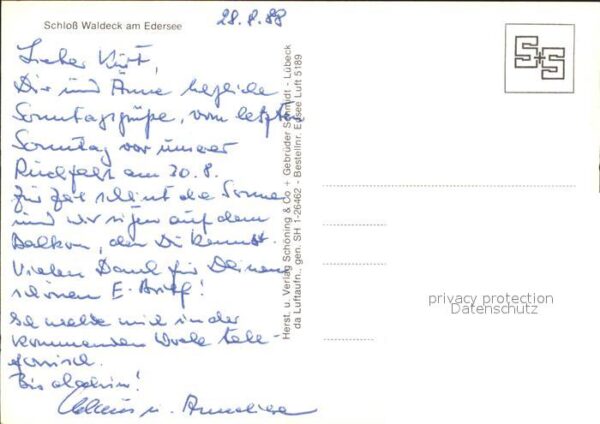 Schloß Waldeck am Edersee
28.8.88
Lieber Kurt,
Dir und Anne herzliche
Sonntagsgrüße, vom letzten
Sonntag vor unserer
Rückfahrt am 30.8.
Zur Zeit scheint die Sonne
und wir sitzen auf dem
Balkon, den Du kennst.
Vielen Dank für Deinen
schönen E-Brief!
Ich melde mich in der
kommenden Woche tele-
fonisch.
Bis dahin!
Klaus u. Anneliese
Herst. u. Verlag Schöning & Co + Gebrüder Schmidt - Lübeck
da Luftaufn., gen. SH 1-26462 - Bestellnr. Edsee Luft 5189
S+S
privacy protection
Datenschutz